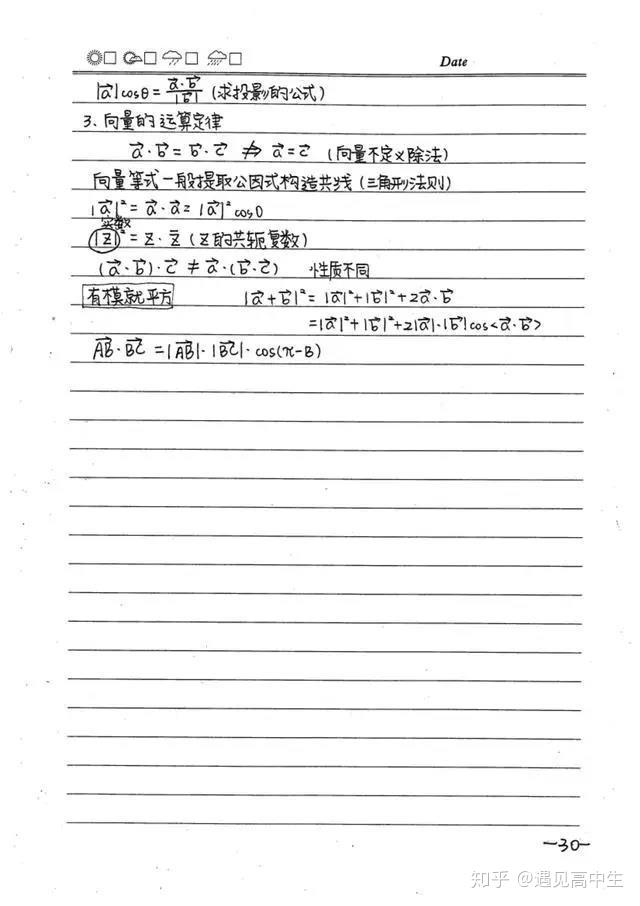 Date
|a⃗|cosθ = a⃗·b⃗/|b⃗| (求投影的公式)
3、向量的运算定律
a⃗·b⃗ = b⃗·c⃗ ⇏ a⃗ = c⃗ (向量不定义除法)
向量等式一般提取公因式构造共线(三角形法则)
|a⃗|² = a⃗·a⃗ = |a⃗|²cos0
实数
|z|² = z·z̄ (z的共轭复数)
(a⃗·b⃗)·c⃗ ≠ a⃗·(b⃗·c⃗) 性质不同
有模就平方 |a⃗+b⃗|² = |a⃗|²+|b⃗|²+2a⃗·b⃗
=|a⃗|²+|b⃗|²+2|a⃗|·|b⃗|cos<a⃗·b⃗>
AB⃗·BC⃗ = |AB⃗|·|BC⃗|·cos(π-B)
-30-
知乎 @遇见高中生